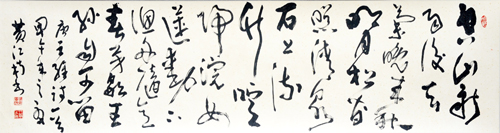 空山新
雨後天
氣晚來秋
明月松間
照清泉
石上流
竹喧
歸浣女
蓮動下
漁舟隨意
春芳歇王
孫自可留
唐王維詩
甲午年之夏